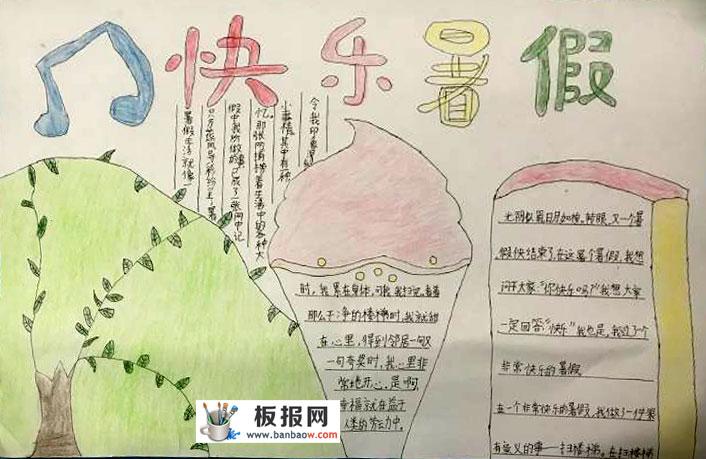 快乐暑假
暑假生活就像一
只万花筒,
假中我所做的事,已成了一张闻中记
忆。那张
小事情,其中有
令我印象
时,我累在身体,可我
那么干净的楼梯时,我就甜
在心里,得到邻居一句又
一句夸奖时,我心里非
常地开心,是啊,
幸福就在益于
人类的劳动中。
光阴似箭日月如梭,转眼,又一个暑
假快结束了,在这暑个暑假,我想
问于大家:“你快乐吗?”我想大家
一定回答:“快乐”我也是,我过了个
非常快乐的暑假
在一个非常快乐的暑假,我做了一件最
有意义的事——扫楼梯。在扫楼梯
板报网
www.banbaow.com